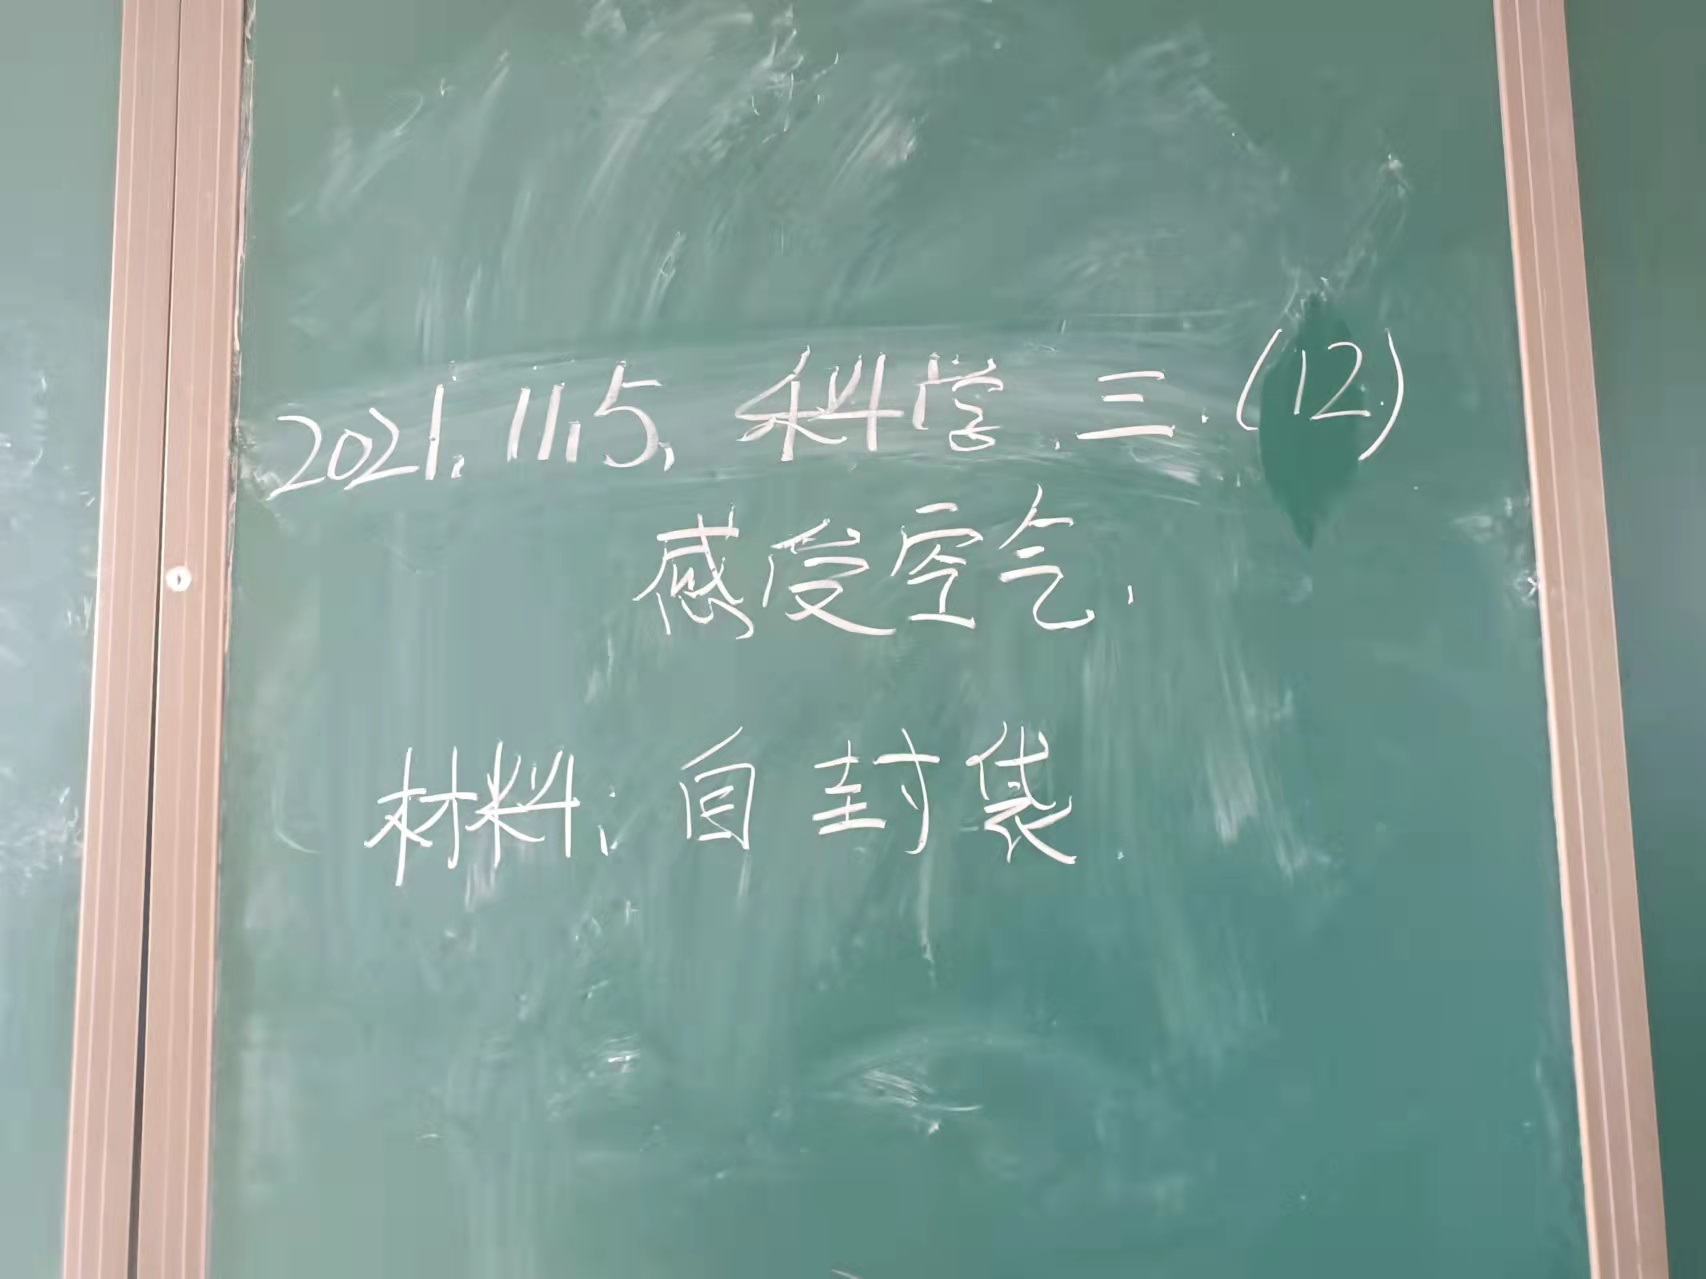 2021.11.5. 科学.三.(12.)
感受空气.
材料: 自封袋